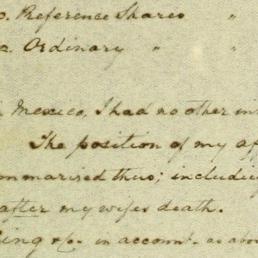 o. Preference Shares "
o. Ordinary " "
Mexico, I had no other in
The position of my af
ommarised thus; includi
after my wifes death.
ing &c. in account. as abo